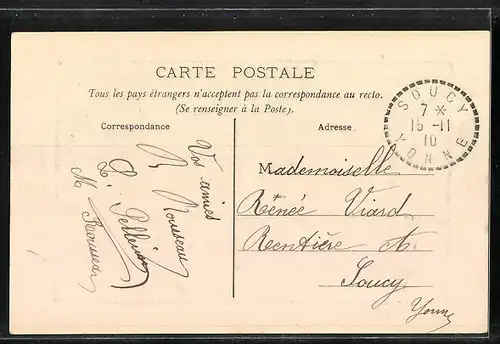 CARTE POSTALE
Tous les pays étrangers n'acceptent pas la correspondance au recto.
(Se renseigner à la Poste).
Correspondance
Adresse
Vos amies
R Rousseau
L. Pellerin
M Rousseau
Mademoiselle
Rénée Viard
Rentière A.
Soucy
Yonne
SOUCY
7 *
15 -11
10
YONNE